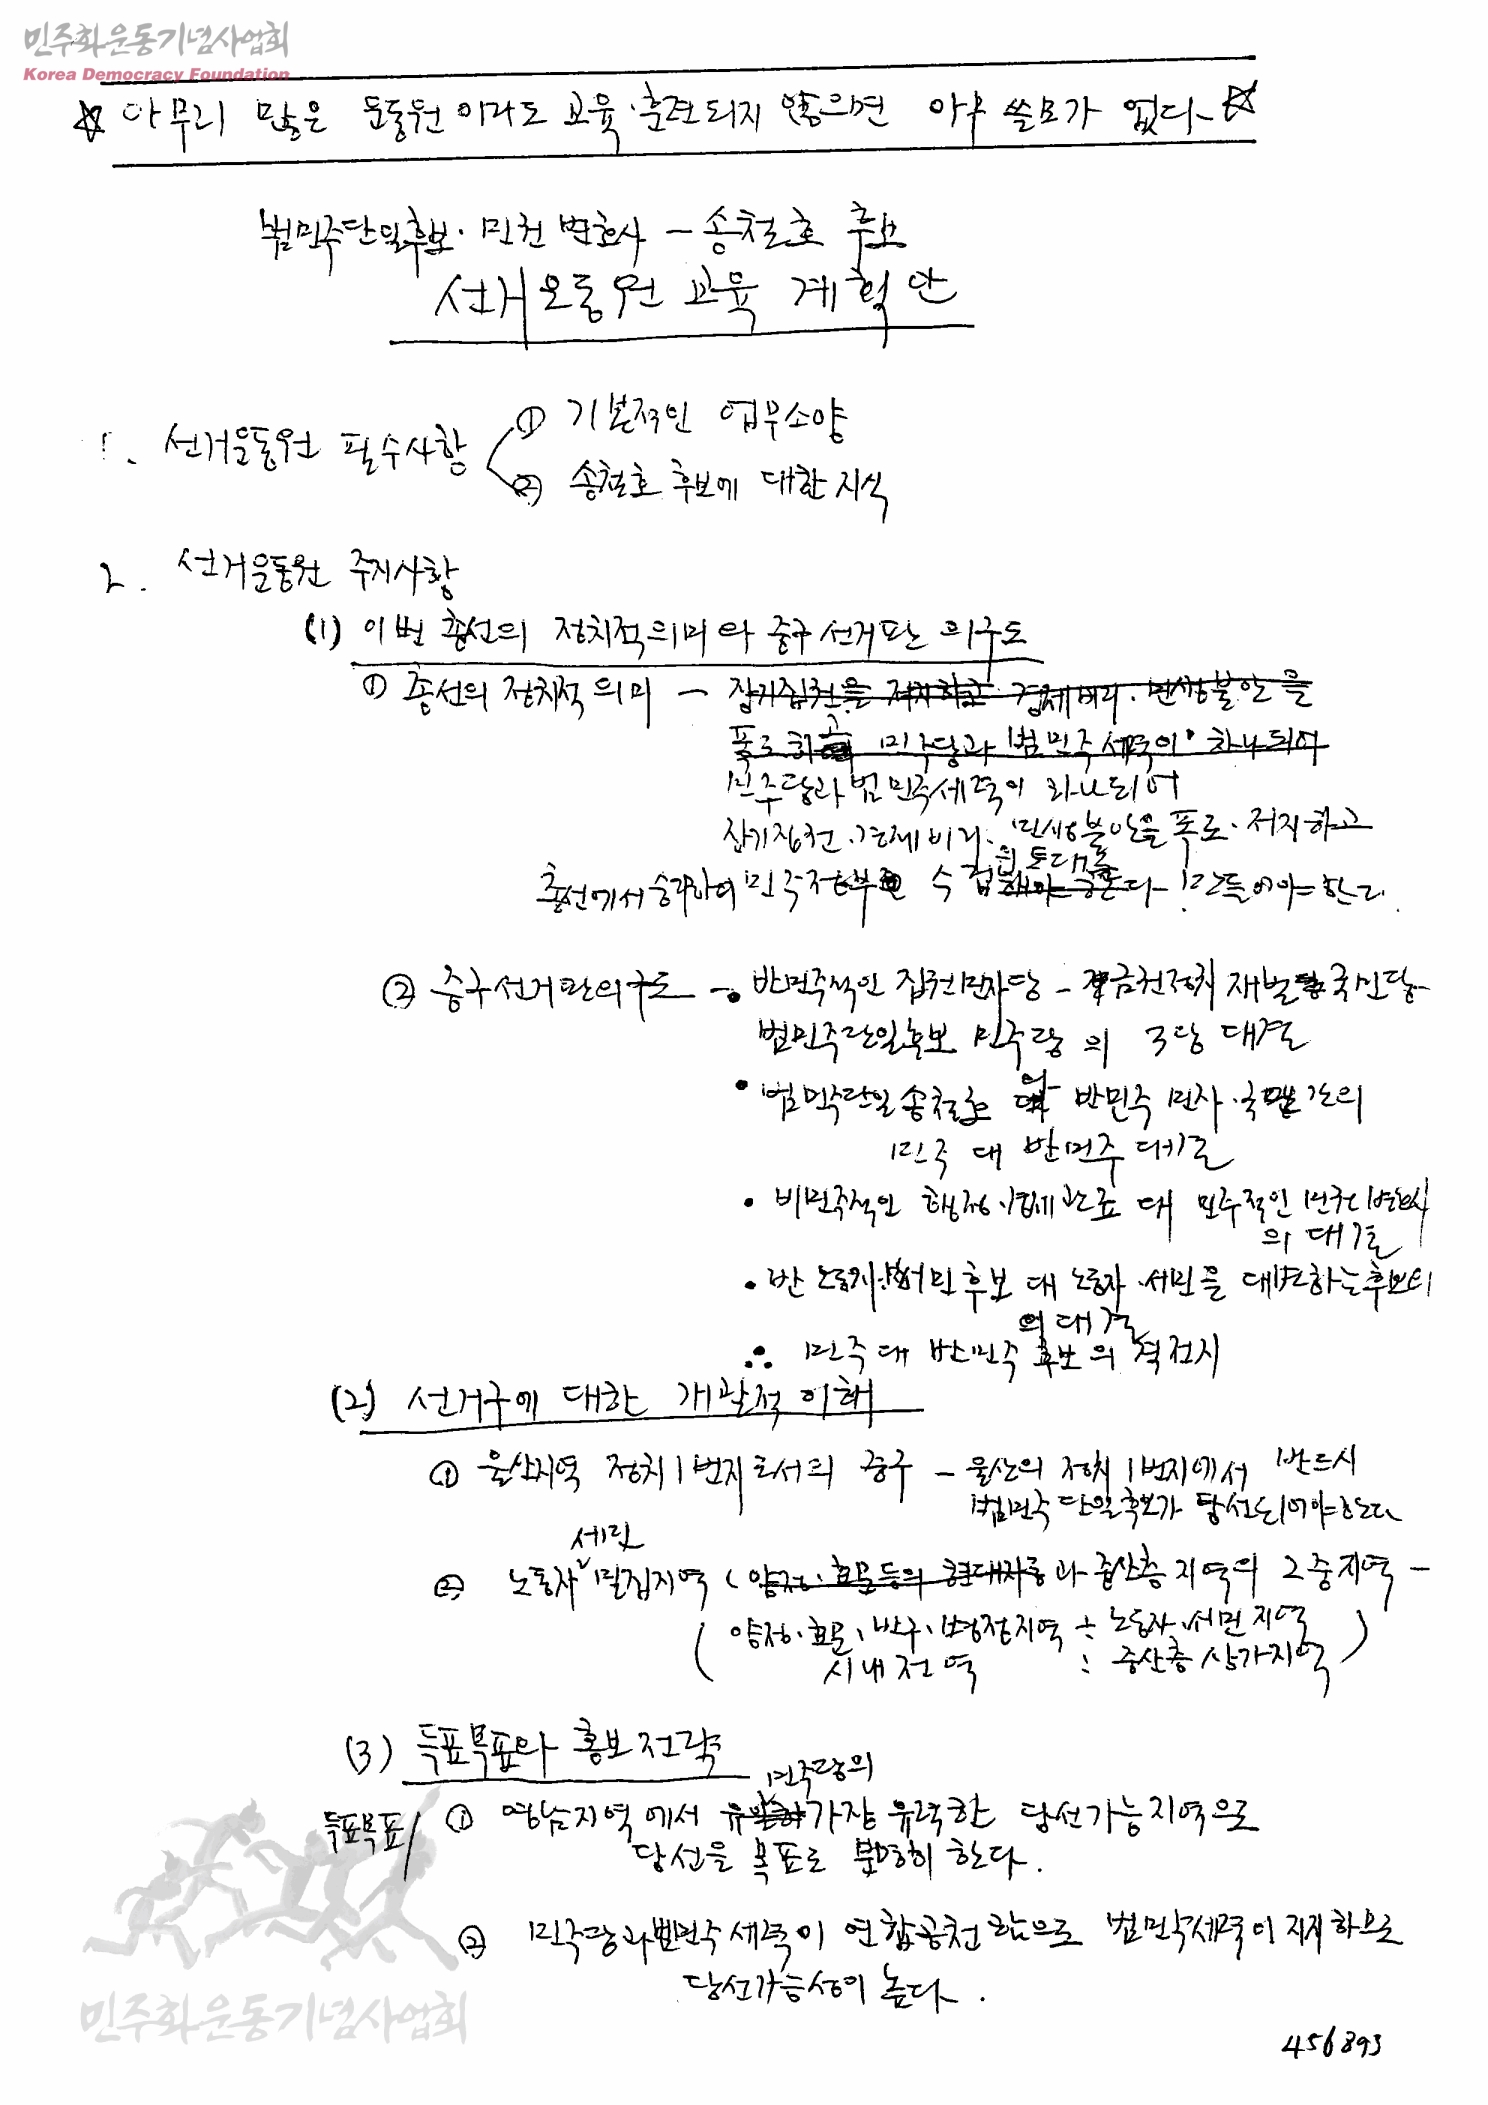 민주화운동기념사업회
Korea Democracy Foundation
☆ 아무리 많은 운동원이라도 교육·훈련되지 않으면 아무 쓸모가 없다. ☆
범민주단일후보·민권변호사 - 송철호 후보
선거운동원 교육 계획안
1. 선거운동원 필수사항
① 기본적인 업무소양
② 송철호 후보에 대한 지식
2. 선거운동원 주지사항
(1) 이번 총선의 정치적 의미와 중구 선거판의 구도
① 총선의 정치적 의미 - 장기집권을 저지하고 경제비리·민생불안을
폭로하고 민주당과 범민주세력이 하나되어
민주당과 범민주세력이 하나되어
장기집권·경제비리·민생불안을 폭로·저지하고
의 토대를
총선에서 승리하여 민주정부 수립해야 한다 만들어야 한다.
② 중구 선거판의 구도 - • 반민주적인 집권민자당 - 금권정치 재벌 국민당
범민주단일후보 민주당의 3당 대결
• 범민주단일 송철호와 반민주 민자·국민간의
민주 대 반민주 대결
• 비민주적인 행정·관료 대 민주적인 민권변호사
의 대결
• 반노동자·반서민후보 대 노동자·서민을 대변하는 후보의
의 대결
∴ 민주 대 반민주 후보의 격전지
(2) 선거구에 대한 개괄적 이해
① 울산지역 정치1번지로서의 중구 - 울산의 정치1번지에서 반드시
범민주 단일후보가 당선되어야 한다
서민
② 노동자 밀집지역 (양정·효문등의 현대자동 과 중산층 지역의 2중지역 -
( 양정·효문·반구·병영지역 : 노동자·서민지역
시내전역 : 중산층 상가지역 )
(3) 득표목표와 홍보전략
민주당의
득표목표/ ① 영남지역에서 가장 유력한 당선가능지역으로
당선을 목표로 분명히 한다.
② 민주당과 범민주세력이 연합공천함으로 범민주세력이 지지하므로
당선가능성이 높다.
민주화운동기념사업회
456893